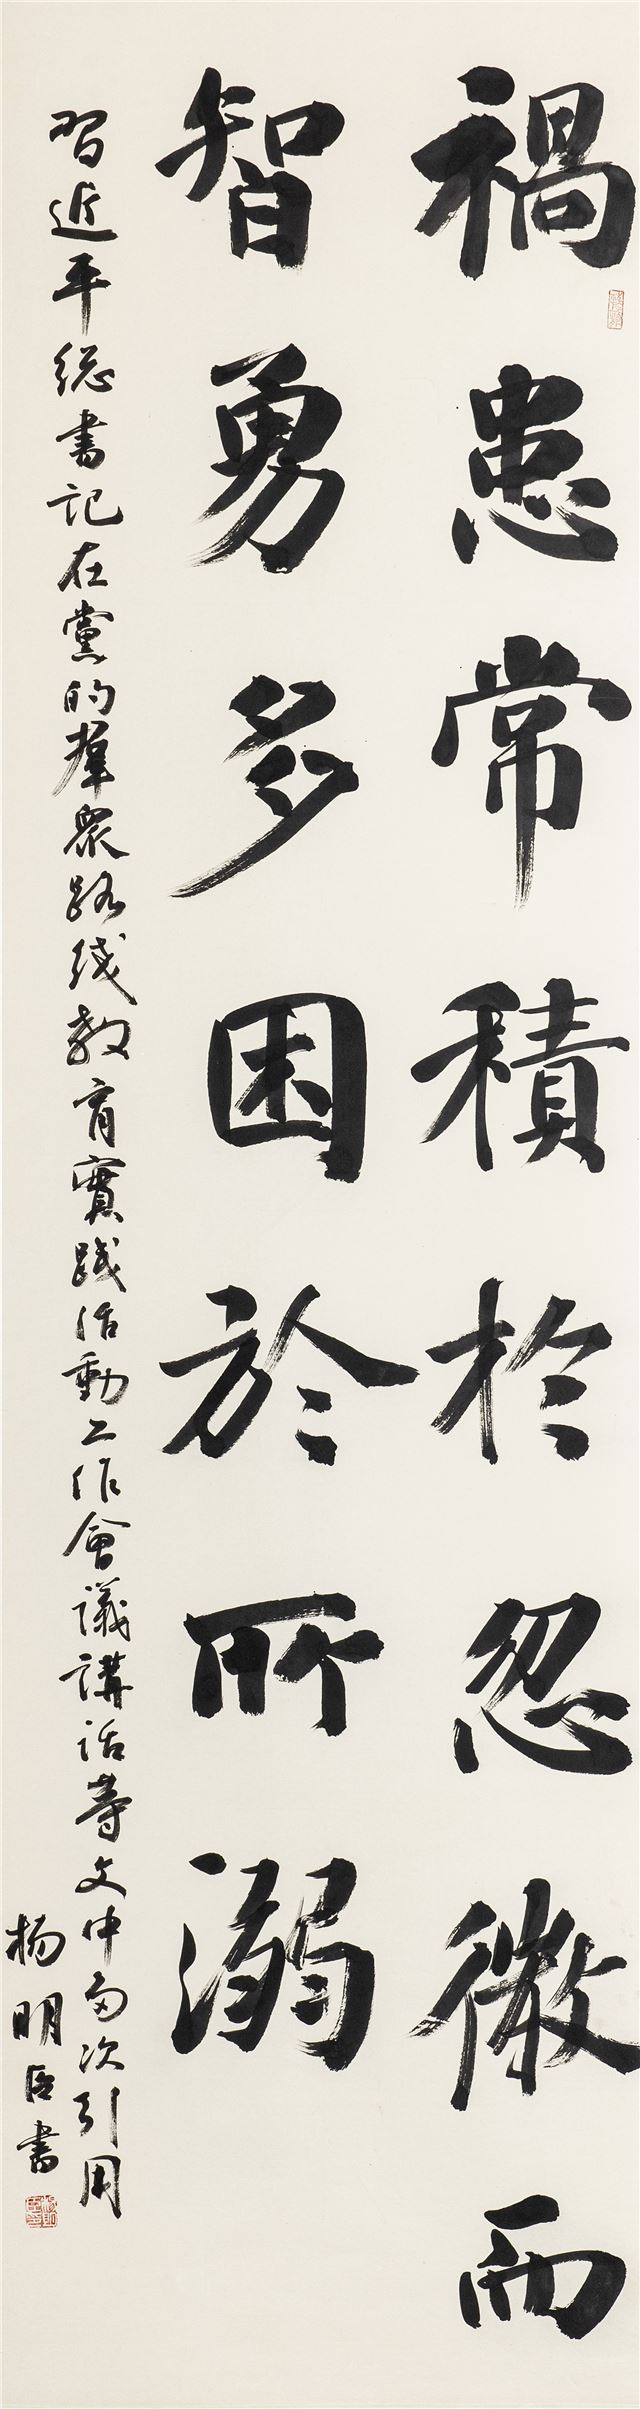 禍患常積於忽微而
智勇多困於所溺
習近平總書記在黨的羣衆路綫教育實踐活動工作會議講話等文中多次引用
楊明臣書